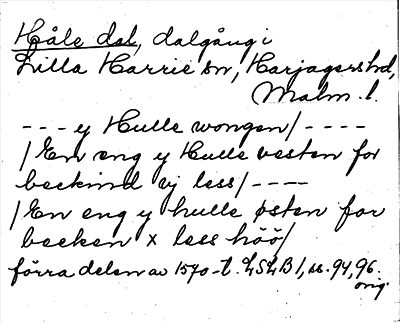 Håle dal, dalgång i
Lilla Harrie sn, Harjagers hd,
Malm. l.
--- y Hulle wongen/ ----
/En eng y Hulle vesten for
beckind vj less/ ----
/En eng y hulle østen for
becken x less höö/
förra delen av 1570-t. LSLB 1, ss. 94, 96.
orig.